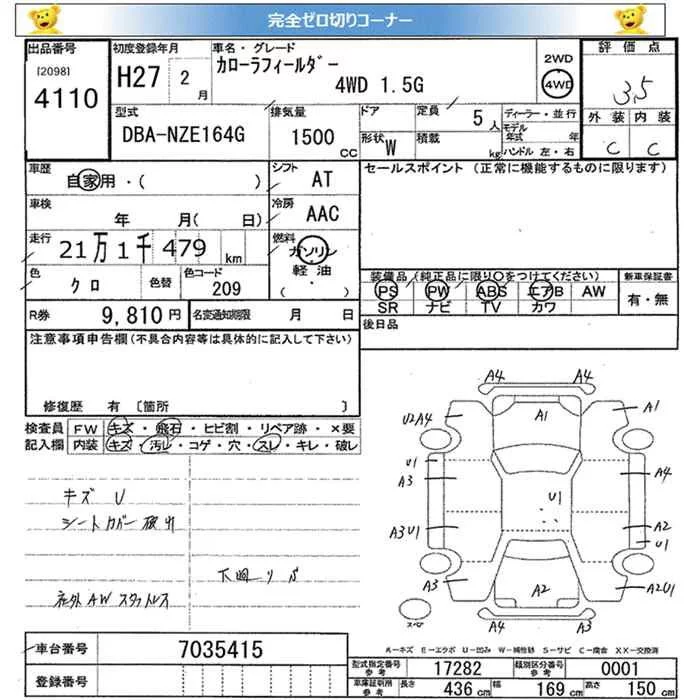 完全ゼロ切りコーナー
出品番号
[2098]
4110
初度登録年月
H27 2月
車名・グレード
カローラフィールダー
4WD 1.5G
2WD
4WD
評価点
3.5
外装 内装
C C
型式
DBA-NZE164G
排気量
1500 CC
ドア
形状 W
定員 5人
積載 kg
ディーラー・並行
モデル年式 年
ハンドル 左・右
車歴
自家用・( )
シフト
AT
セールスポイント (正常に機能するものに限ります)
車検
年 月( 日)
冷房
AAC
走行
21万1千479 km
燃料
ガソリン
軽油
( )
色
クロ
色替
色コード
209
装備品(純正品に限り〇をつけてください)
PS PW ABS エアB AW
SR ナビ TV カワ
新車保証書
有・無
R券 9,810円
名変通知期限 月 日
後日品
注意事項申告欄(不具合内容等は具体的に記入して下さい)
修復歴 有 〔箇所 〕
検査員記入欄
FW キズ・飛石・ヒビ割・リペア跡・×要
内装 キズ・汚レ・コゲ・穴・スレ・キレ・破レ
キズ U
シートカバー
社外AWスタッドレス
下回リ
A4
U2A4 A1 A1
U1
A3 U1 A4
A3U1 A2
U1
A3 A2 A2U1
A4 A3
スペア
A−キズ E−エクボ U−凹ミ W−補修跡 S−サビ C−腐食 XX−交換済
車台番号 7035415
登録番号
型式指定番号 参考 17282
類別区分番号 参考 0001
車庫証明用 参考 長さ 436 cm 幅 169 cm 高さ 150 cm